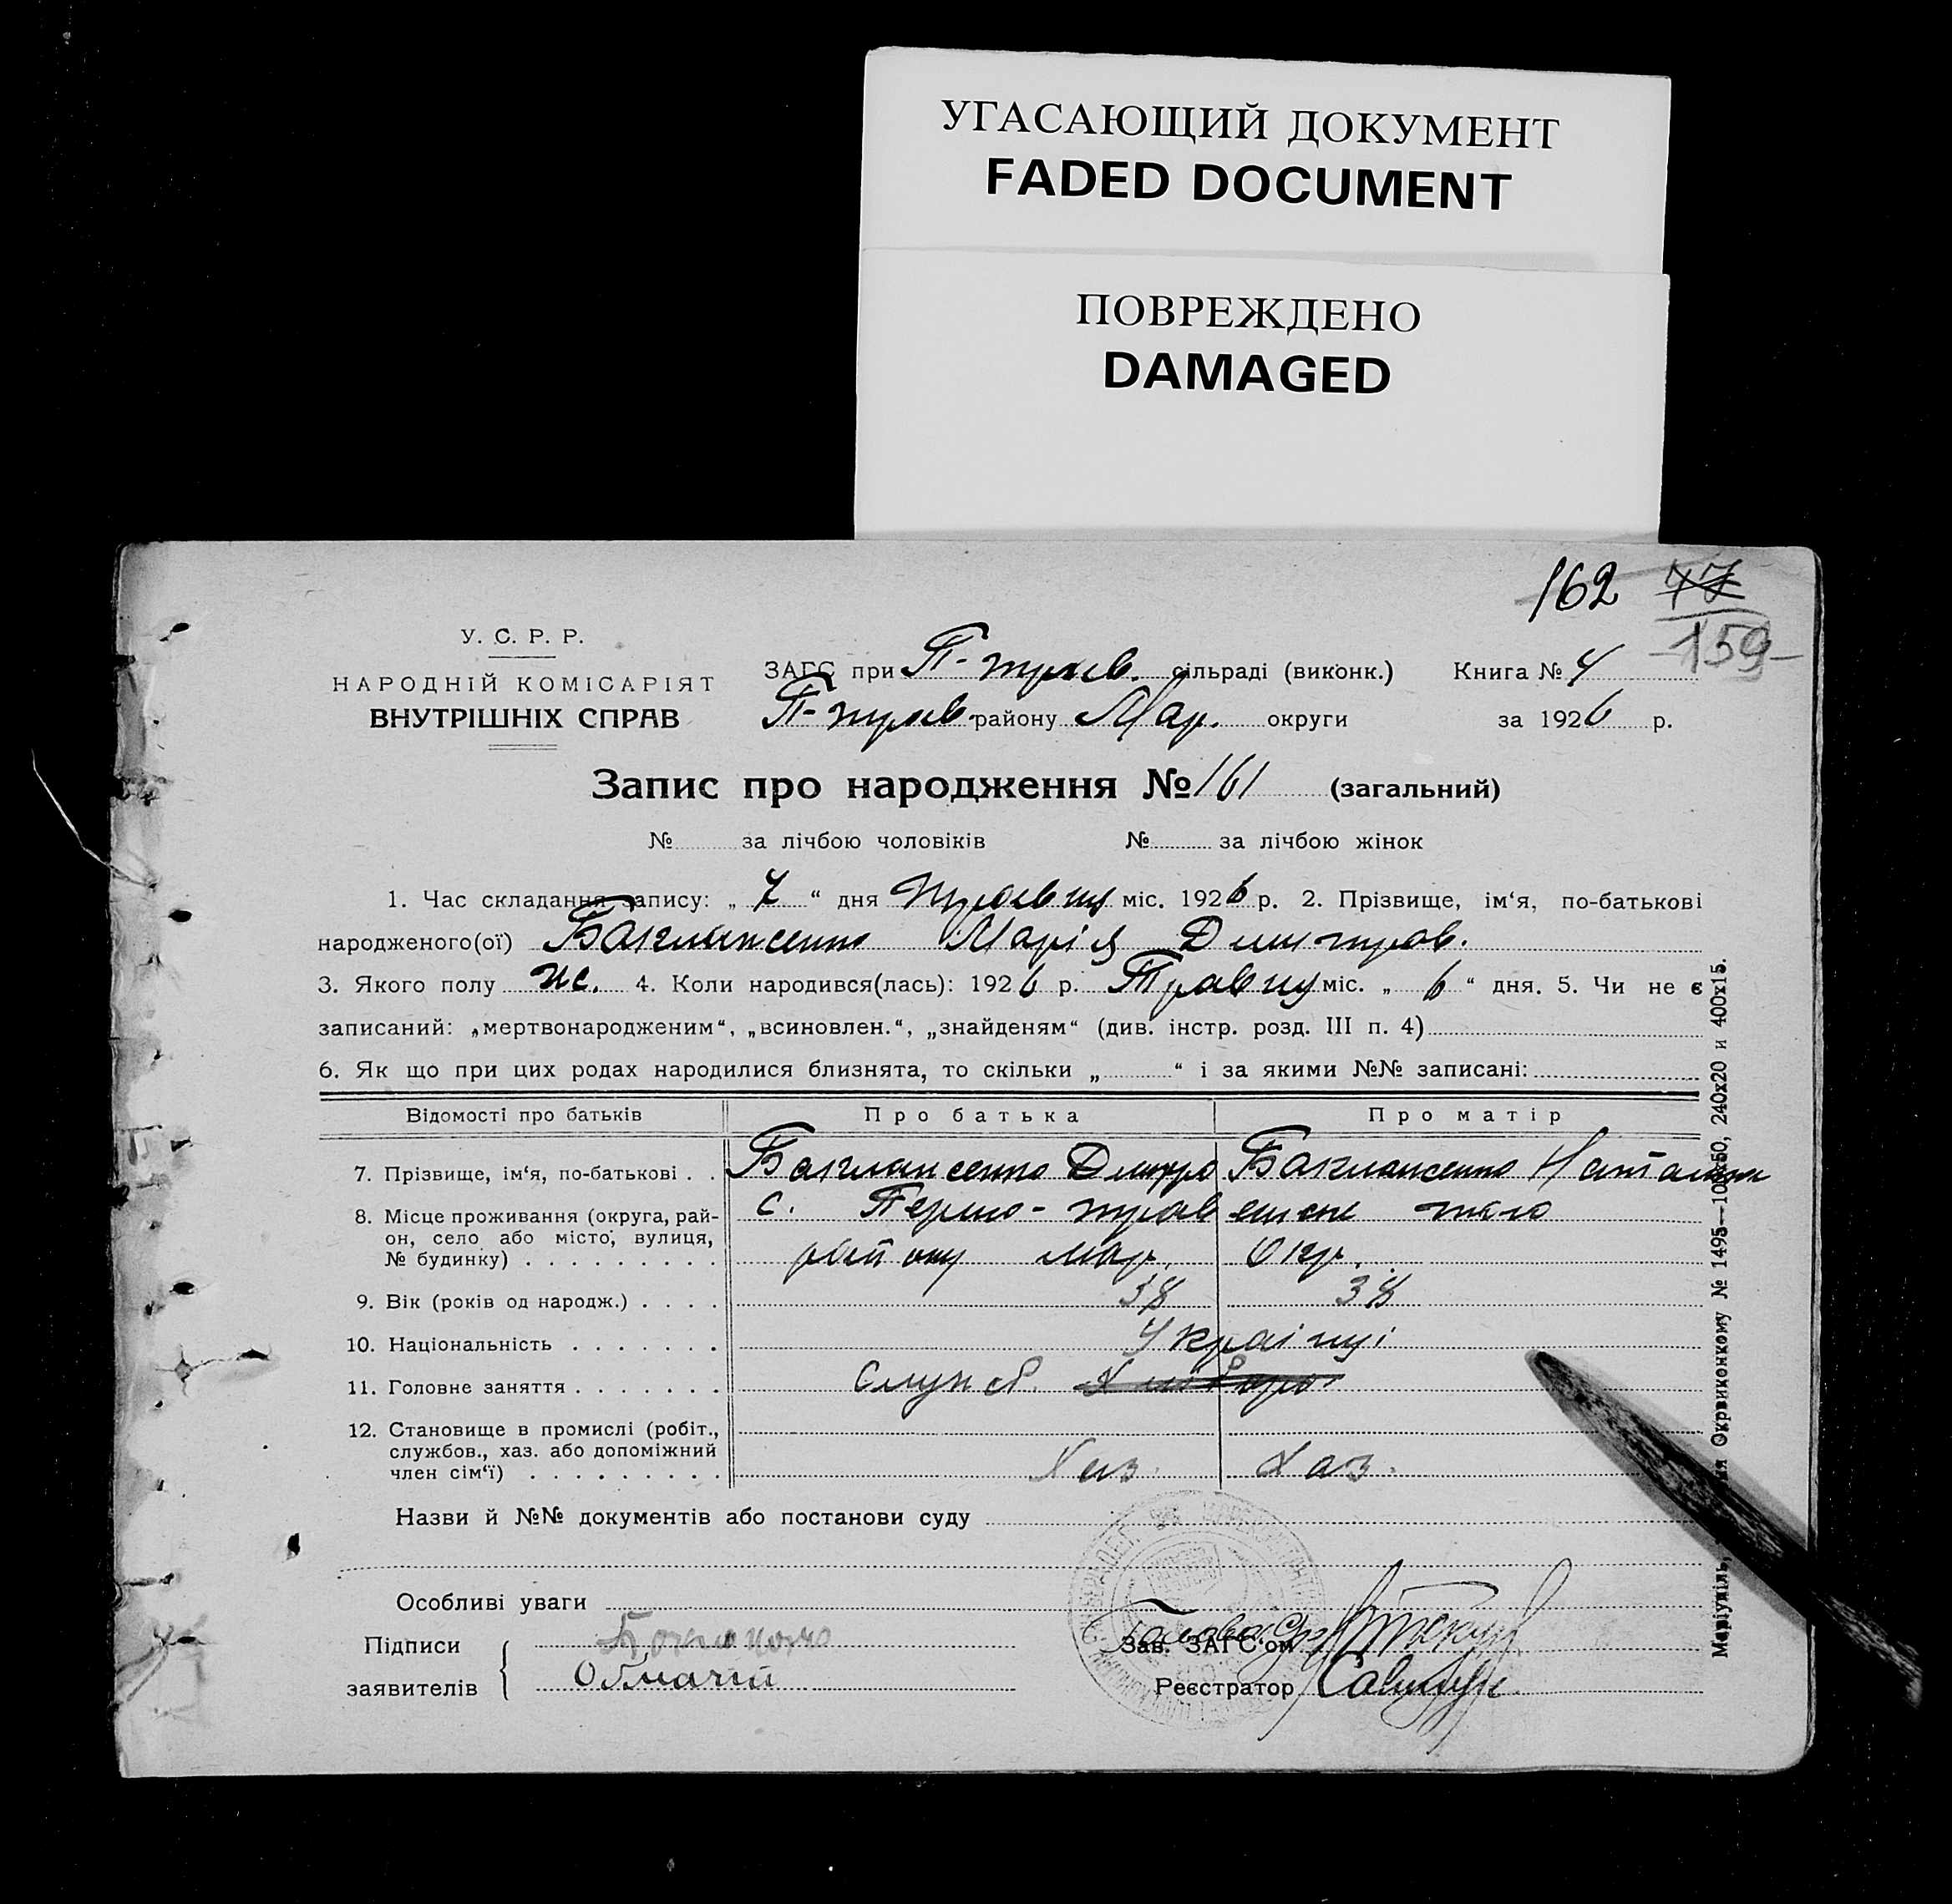 УГАСАЮЩИЙ ДОКУМЕНТ
FADED DOCUMENT
ПОВРЕЖДЕНО
DAMAGED
162 77
159
У. С. Р. Р.
НАРОДНІЙ КОМІСАРІЯТ
ВНУТРІШНІХ СПРАВ
ЗАГС при П-трав. сільраді (виконк.) Книга № 4
П-трав. району Мар. округи за 1926 р.
Запис про народження № 161 (загальний)
№ за лічбою чоловіків № за лічбою жінок
1. Час складання запису: „ 7 “ дня Травня міс. 1926 р. 2. Прізвище, ім‘я, по-батькові
народженого(ої) Марія Дмитров.
3. Якого полу ж. 4. Коли народився(лась): 1926 р. Травну міс. „ 6 “ дня. 5. Чи не є
записаний: „мертвонародженим“, „всиновлен.“, „знайденям“ (див. інстр. розд. III п. 4)
6. Як що при цих родах народилися близнята, то скільки „ “ і за якими №№ записані:
Відомості про батьків Про батька Про матір
7. Прізвище, ім‘я, по-батькові . . Дмитро
8. Місце проживання (округа, рай- с. Першо-трав
он, село або місто, вулиця,
№ будинку) . . . . . . . . . району Мар. Окр.
9. Вік (років од народж.) . . . . 38 38
10. Національність . . . . . . . Україці
11. Головне заняття . . . . . . . Служб.
12. Становище в промислі (робіт.,
службов., хаз. або допоміжний
член сім‘ї) . . . . . . . . . Хаз. Хаз.
Назви й №№ документів або постанови суду
Особливі уваги
Підписи Зав. ЗАГС‘ом Голова
заявителів Реєстратор
Маріупіль, Окрвиконкому № 1495—100х50, 240х20 и 400х15.